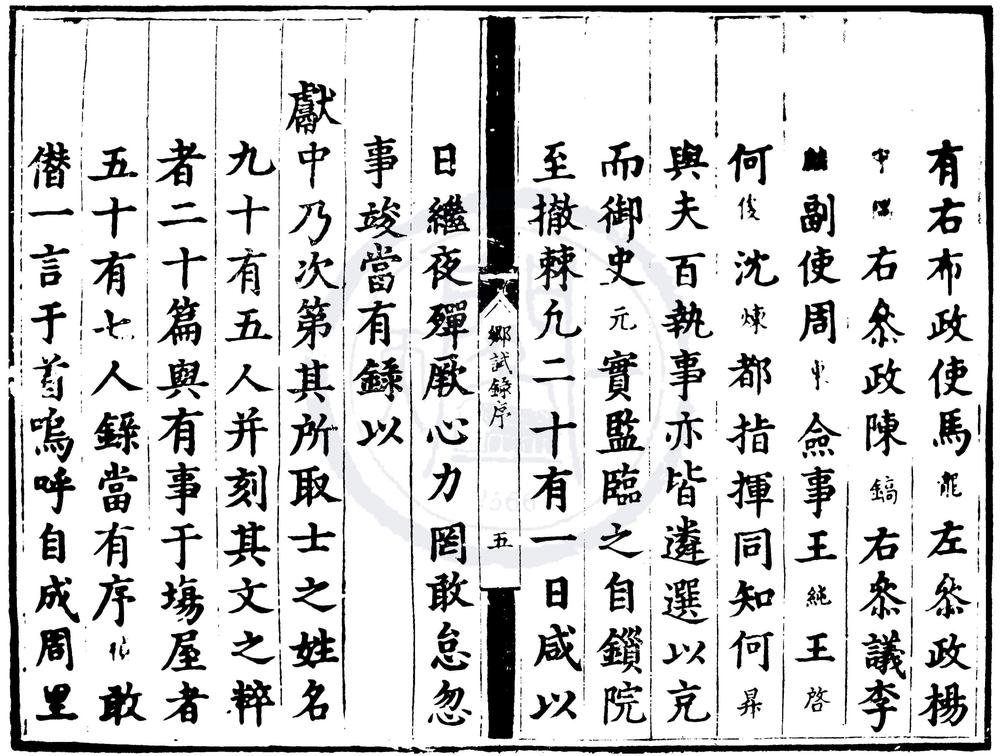 有右布政使馬龍左叅政楊
右叅政陳鎬右叅議李
副使周東僉事王純王啓
何俊沈煉都指揮同知何昇
與夫百執事亦皆遴選以充
而御史元實監臨之自鎻院
至撤棘凢二十有一日咸以
鄉試錄序
五
日繼夜殫厥心力罔敢怠忽
事竣當有録以
獻中乃次第其所取士之姓名
九十有五人并刻其文之粹
者二十篇與有事于塲屋者
五十有七人錄當有序敢
僭一言于首嗚呼自成周里